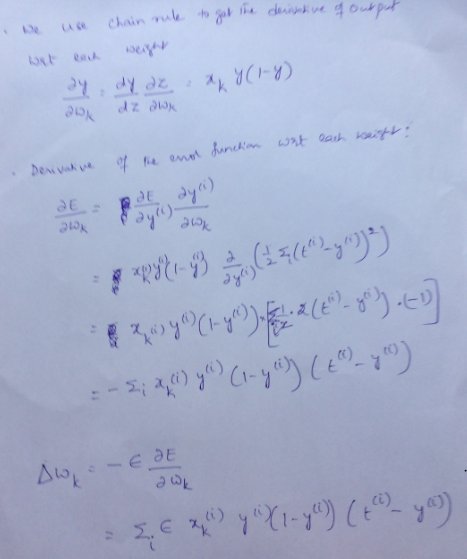 · We use chain rule to get the derivative of output
wrt each weight
∂y/∂w_k = dy/dz ∂z/∂w_k = x_k y(1-y)
· Derivative of the error function wrt each weight:
∂E/∂w_k = ∂E/∂y^(i) ∂y^(i)/∂w_k
= x_k^(i) y^(i) (1-y^(i)) ∂/∂y^(i) (1/2 Σ_i (t^(i) - y^(i))^2)
= x_k^(i) y^(i) (1-y^(i)) · [Σ_i 1/2 · 2 (t^(i) - y^(i)) · (-1)]
= - Σ_i x_k^(i) y^(i) (1-y^(i)) (t^(i) - y^(i))
Δw_k = - ϵ ∂E/∂w_k
= Σ_i ϵ x_k^(i) y^(i) (1-y^(i)) (t^(i) - y^(i))